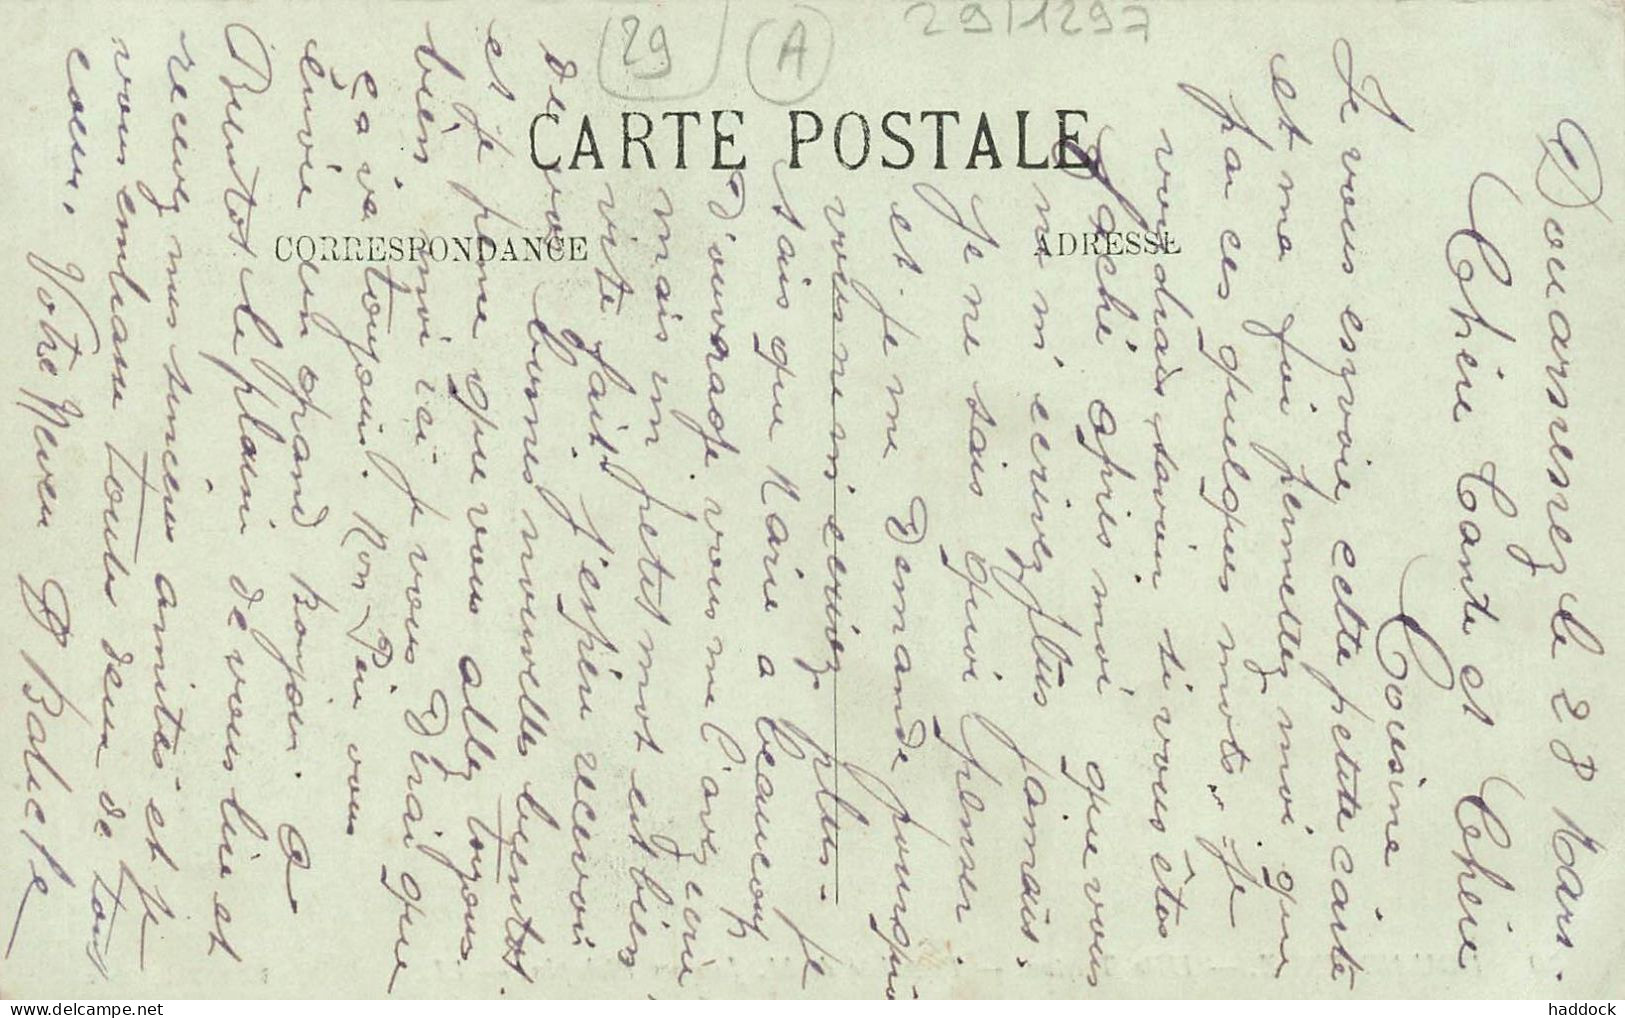 29
A
2911297
CARTE POSTALE
CORRESPONDANCE
ADRESSE
Douarnenez le 28 Mars.
Chère Tante et Chère
Cousine
Je vous envoie cette petite carte
et ma foi permettez moi que
par ces quelques mots. je
voudrais savoir si vous êtes
faché après moi que vous
ne m'ecrivez plus jamais.
Je ne sais quoi penser.
et je me demande pourquoi
vous ne m'ecrivez plus. je
sais que Marie a beaucoup
d'ouvrage vous me l'avez écrie
mais un petit mot est bien
vite fait. J'espère recevoir
de vos bonnes nouvelles bientot.
et je pense que vous allez toujours
bien. moi ici je vous dirai que
ça va toujours. Mon Père vous
envoie un grand bonjour a
Bientot le plaisir de vous lire et
recevez mes sincères amitiés et je
vous embrasse toute deux de tout
cœur. Votre Neveu